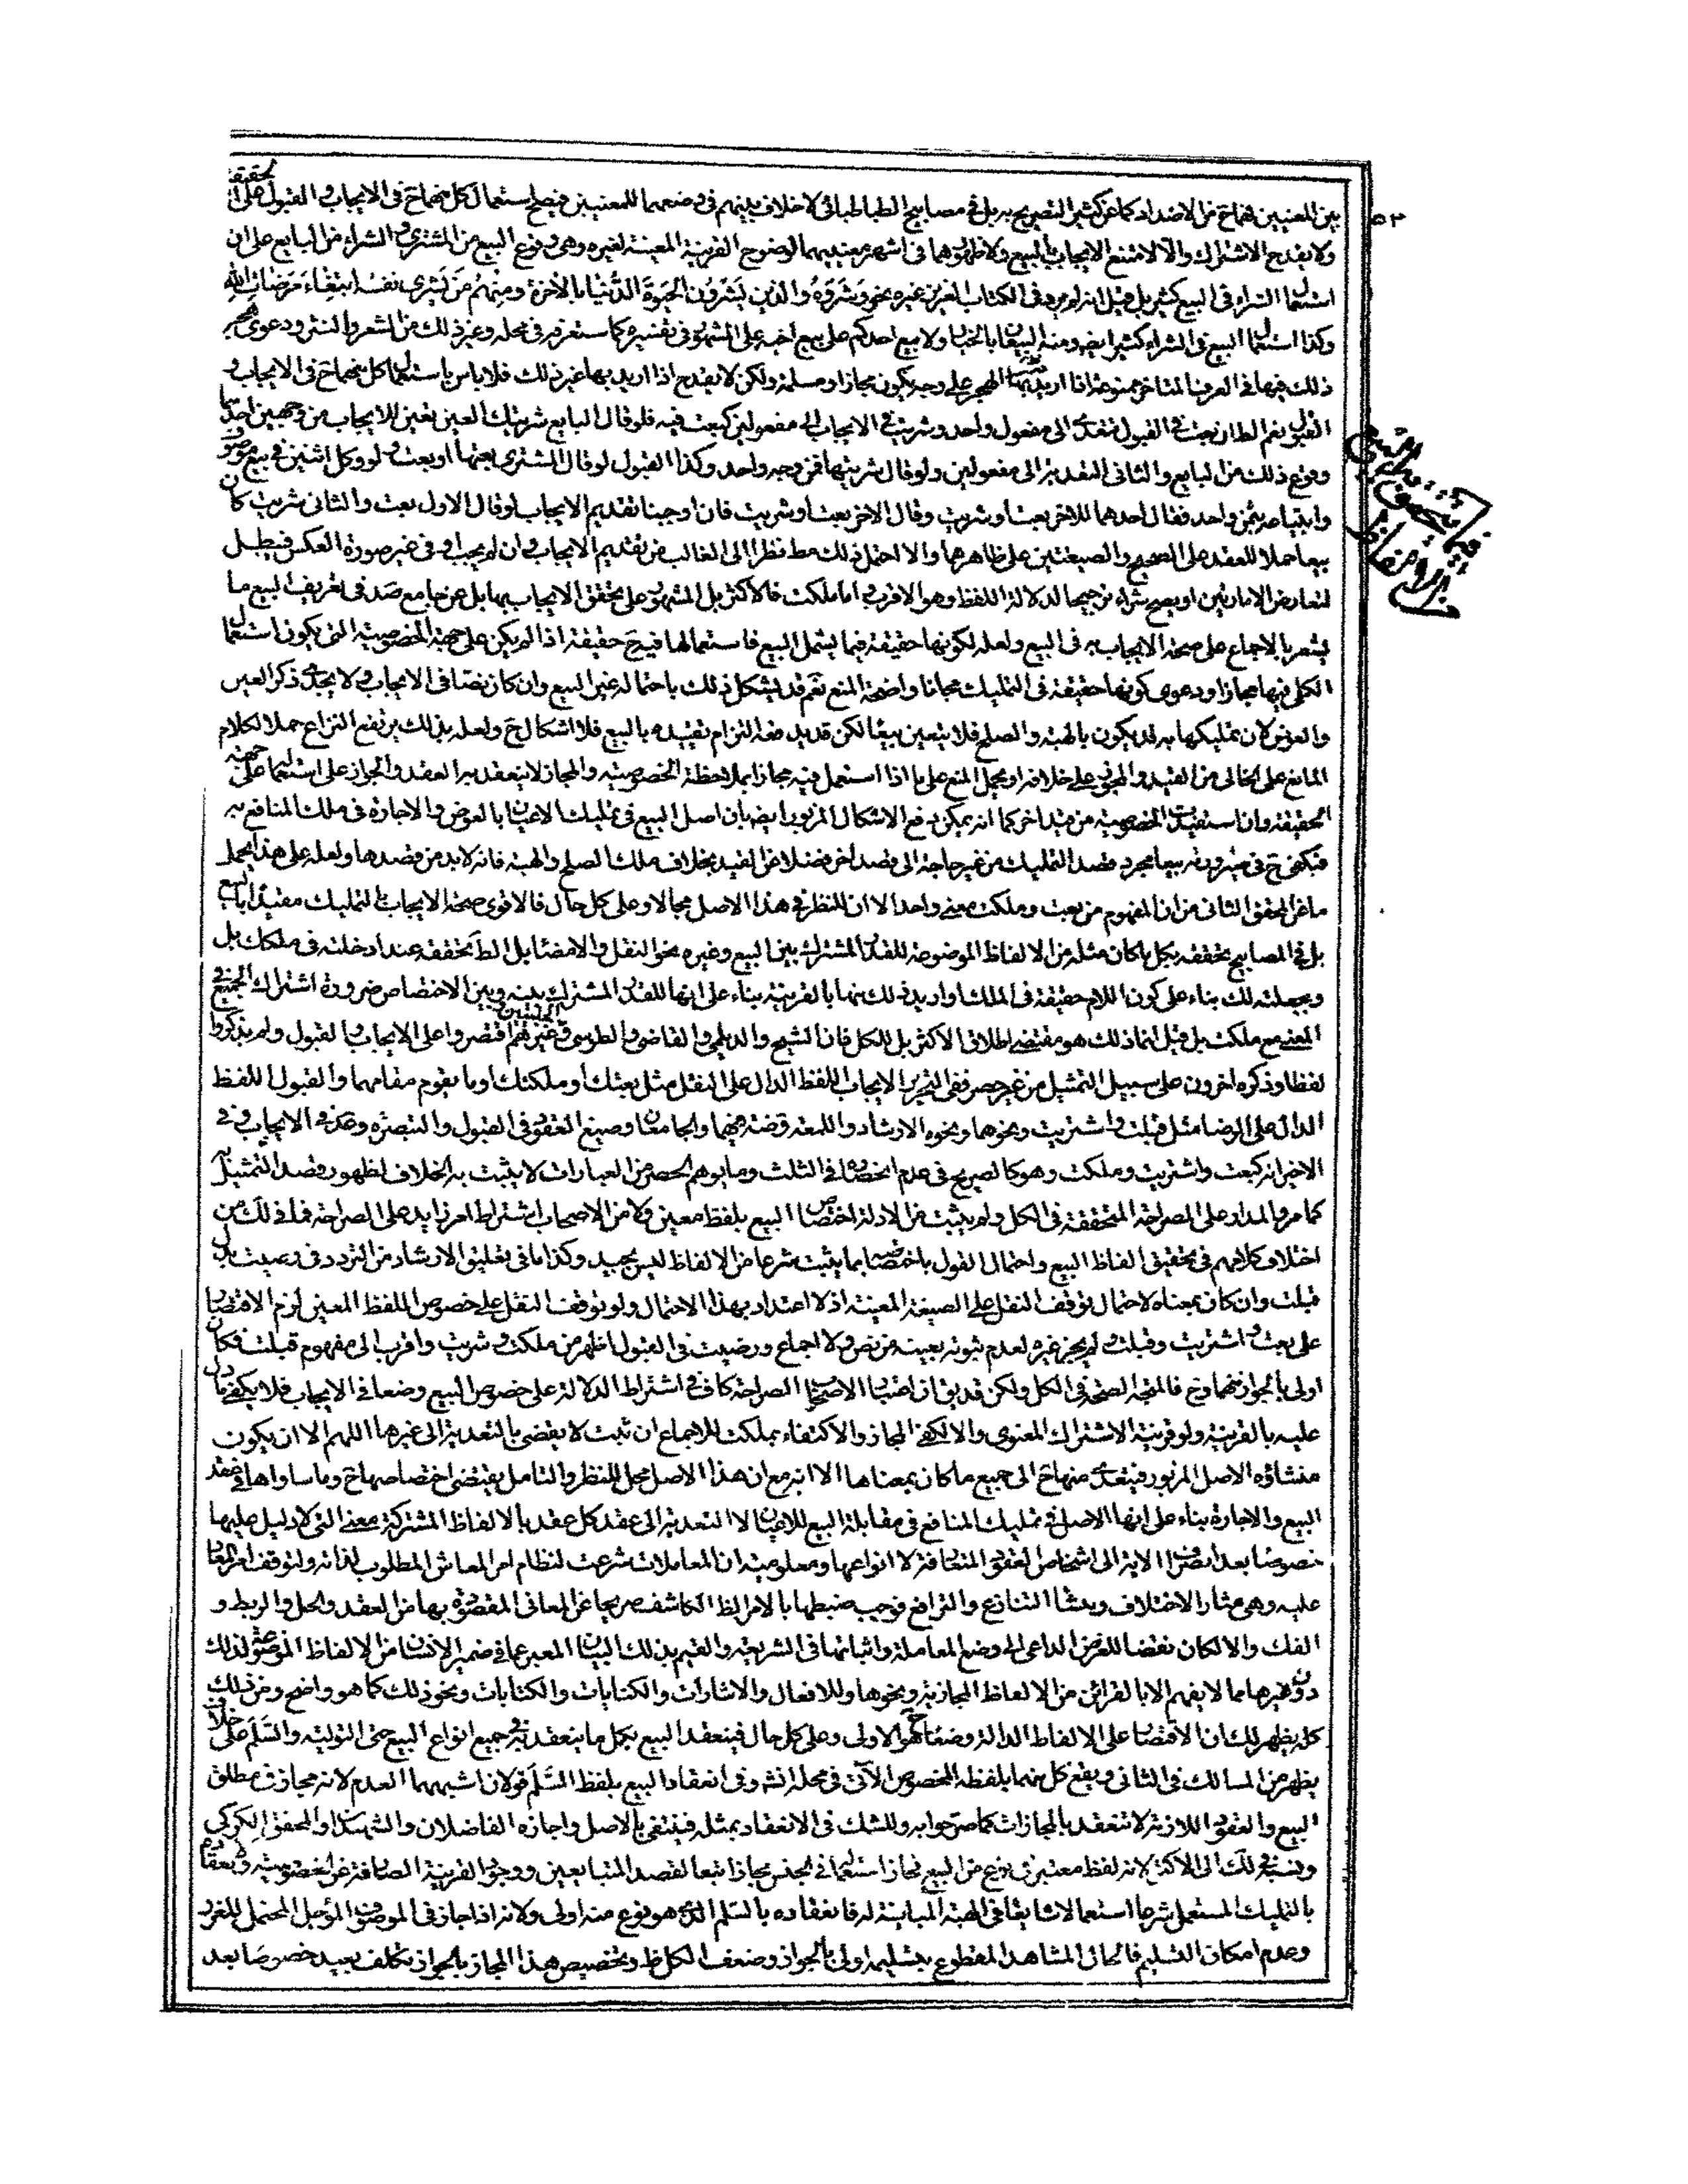 بين المعنيين فهما ح من الاضداد كما عن كثير التصريح به بل في مصابيح الطباطبائي لا خلاف بينهم في وضعهما للمعنيين فيصلح استعمال كل منهما ح في الايجاب والقبول على الحقيقة
ولا يقدح الاشتراك والا لامتنع الايجاب بالبيع ولا ظهورهما في اشهر معنييهما لوضوح القرينة المعينة لغيره وهي وقوع البيع من المشتري والشراء من البايع على ان
استعمال الشراء في البيع كثير بل قيل انه لم يرد في الكتاب العزيز غيره نحو وَشَرَوْهُ والذين يَشْرُونَ الحَيوةَ الدُّنيا بالآخرة ومِنهُم مَن يَشري نفسَهُ ابتِغاءَ مَرضاتِ اللهِ
وكذا استعمال البيع في الشراء كثير ايضا ومنه البيعان بالخيار ولا يبع احدكم على بيع اخيه على المشهور في تفسيره كما ستعرفه في محله وغير ذلك من الشعر والنثر ودعوى هجر
ذلك فيها في العرف المتاخر ممنوعة اذا اريد الهجر على وجه يكون مجازا ومسلمة ولكن لا يقدح اذا اريد بها غير ذلك فلا باس باستعمال كل منهما ح في الايجاب و
القبول نعم الظ ان بعت في القبول متعد الى مفعول واحد وشريت في الايجاب الى مفعولين كبعت فيه فلو قال البايع شريتك العين تعين للايجاب من وجهين احدهما
وقوع ذلك من البايع والثاني التعدية الى مفعولين ولو قال شريتها فمن وجه واحد وكذا القبول لو قال المشتري بعتها او بعت ولو وكل اثنين في بيع
وابتياعه بثمن واحد فقال احدهما للاخر بعت او شريت وقال الاخر بعت او شريت فان اوجبنا تقديم الايجاب او قال الاول بعت والثاني شريت كان
بيعا حملا للعقد على الصحيح والصيغتين على ظاهرهما والا احتمل ذلك مط نظرا الى الغالب من تقديم الايجاب وان لم يجب او في غير صورة العكس فيبطل
لتعارض الامارتين او يصح شراء ترجيحا لدلالة اللفظ وهو الاقرب اما ملكت فالاكثر بل المشهور على تحقق الايجاب بها بل عن جامع صد في تعريف البيع ما
يشعر بالاجماع على صحة الايجاب به في البيع ولعله لكونها حقيقة فيما يشمل البيع فاستعمالها فيه ح حقيقة اذا لم يكن على جهة الخصوصية التي يكون استعمال
الكلي فيها مجازا ودعوى كونها حقيقة في التمليك مجانا واضحة المنع نعم قد يشكل ذلك باحتماله غير البيع وان كان نصا في الايجاب ولا يجدي ذكر العين
والعوض لان تمليكها به قد يكون بالهبة والصلح فلا يتعين بيعا لكن قد يدفعه التزام تقييده بالبيع فلا اشكال ح ولعله بذلك يرتفع النزاع حملا لكلام
المانع على الخالي من القيد والمجوز على خلافه او يحمل المنع على ما اذا استعمل فيه مجازا بملاحظة الخصوصية والمجاز لا ينعقد به العقد والجواز على استعمالها على جهة
الحقيقة وان استفيدت الخصوصية من قيد اخر كما انه يمكن دفع الاشكال المزبور ايضا بان اصل البيع في تمليك الاعيان بالعوض والاجارة في ملك المنافع به
فيكفي ح في صيرورته بيعا مجرد قصد التمليك من غير حاجة الى قصد اخر فضلا عن القيد بخلاف ملك الصلح والهبة فانه لا بد من قصدها ولعله على هذا يحمل
ما عن المحقق الثاني من ان المفهوم من بعت وملكت معنى واحد الا ان للنظر في هذا الاصل مجالا وعلى كل حال فالاقوى صحة الايجاب بالتمليك مقيدا بالبيع
بل في المصابيح تحققه بكل ما كان مثله من الالفاظ الموضوعة للقدر المشترك بين البيع وغيره نحو النقل والامضاء بل الظ تحققه عند ادخلته في ملكك بل
وجعلته لك بناء على كون اللام حقيقة في الملك او اريد ذلك منها بالقرينة بناء على انها للقدر المشترك بينه وبين الاختصاص ضرورة اشتراك الجميع في
المعنى مع ملكت بل قيل انما ذلك هو مقتضى اطلاق الاكثر بل الكل فان الشيخ والديلمي والقاضي والطوسي والحلبيين وغيرهم اقتصروا على الايجاب والقبول ولم يذكروا
لفظا وذكره اخرون على سبيل التمثيل من غير حصر ففي التحرير الايجاب اللفظ الدال على النقل مثل بعتك او ملكتك او ما يقوم مقامهما والقبول اللفظ
الدال على الرضا مثل قبلت واشتريت ونحوهما ونحوه الارشاد واللمعة والجامعان وصيغ العقود في القبول والتبصرة وعد في الايجاب وفي
الاخير انه كبعت واشتريت وملكت وهو كالصريح في عدم انحصاره في الثلث وما يوهم الحصر من العبارات لا يثبت به الخلاف لظهور قصد التمثيل به
كما مر والمدار على الصراحة المتحققة في الكل ولم يثبت من الادلة اختصاص البيع بلفظ معين ولا من الاصحاب اشتراط امر زايد على الصراحة فما في ذلك من
اختلاف كلامهم في تحقيق الفاظ البيع واحتمال القول باختصاصه بما يثبت شرعا من الالفاظ ليس بجيد وكذا ما في تعليق الارشاد من التردد في رضيت بدل
قبلت وان كان بمعناه لاحتمال توقف النقل على الصيغة المعينة اذ لا اعتداد بهذا الاحتمال ولو توقف النقل على خصوص اللفظ المعين لزم الاقتصار
على بعت واشتريت وقبلت ولم يجز غيره لعدم ثبوته بعينه من نص ولا اجماع ورضيت في القبول اظهر من ملكت وشريت واقرب الى مفهوم قبلت فكان
اولى بالجواز منهما وح فالمتجه الصحة في الكل ولكن قد يق ان اعتبار الاصحاب الصراحة كاف في اشتراط الدلالة على خصوص البيع وضعا في الايجاب فلا يكفي ما دل
عليه بالقرينة ولو قرينة الاشتراك المعنوي والا لكفى المجاز والاكتفاء بملكت للاجماع ان ثبت لا يقضي بالتعدية الى غيرها اللهم الا ان يكون
منشاؤه الاصل المزبور فيتعدى منها ح الى جميع ما كان بمعناها الا انه مع ان هذا الاصل محل للنظر والتامل يقتضي اختصاصها ح وما ساواها في عقد
البيع والاجارة بناء على انها الاصل في تمليك المنافع في مقابلة البيع للاعيان لا التعدية الى عقد كل عقد بالالفاظ المشتركة معنى التي لا دليل عليها
خصوصا بعد انصراف الاية الى اشخاص العقود المتعارفة لا انواعها ومعلومية ان المعاملات شرعت لنظام امر المعاش المطلوب لذاته ولتوقف امر المعاد
عليه وهي مثار الاختلاف ومنشا التنازع والترافع فوجب ضبطها بالامر الظ الكاشف صريحا عن المعاني المقصودة بها من العقد والحل والربط و
الفك والا لكان نقضا للغرض الداعي الى وضع المعاملة واثباتها في الشريعة والقيم بذلك البيان المعبر عما في ضمير الانسان من الالفاظ الموضوعة لذلك
دون غيرها مما لا يفهم الا بالقرائن من الالفاظ المجازية ونحوها وللافعال والاشارات والكنايات والكتابات ونحو ذلك كما هو واضح ومن ذلك
كله يظهر لك ان الاقتصار على الالفاظ الدالة وضعا ح هو الاولى وعلى كل حال فينعقد البيع بكل ما ينعقد به في جميع انواع البيع حتى التولية والسَّلَم على خلاف
يظهر من المسالك في الثاني ويقع كل منهما بلفظه المخصوص الآتي في محله انش وفي انعقاد البيع بلفظ السَّلَم قولان اشبههما العدم لانه مجاز في مطلق
البيع والعقود اللازمة لا تنعقد بالمجازات كما صرحوا به وللشك في الانعقاد بمثله فينتفي بالاصل واجازه الفاضلان والشهيدان والمحقق الكركي
ونسب ذلك الى الاكثر لانه لفظ معتبر في نوع من البيع فجاز استعماله في الجنس مجازا تبعا لقصد المتبايعين ووجود القرينة الصارفة عن الخصوصية
بالتمليك المستعمل شرعا استعمالا شايعا في الهبة المباينة له فانعقاده بالسلم الذي هو نوع منه اولى ولانه اذا جاز في الموصوف المؤجل المحتمل للغرر
وعدم امكان التسليم فالحال المشاهد المقطوع بتسليمه اولى بالجواز وضعف الكل ظ وتخصيص هذا المجاز بالجواز تكلف بعيد خصوصا بعد
٥٣